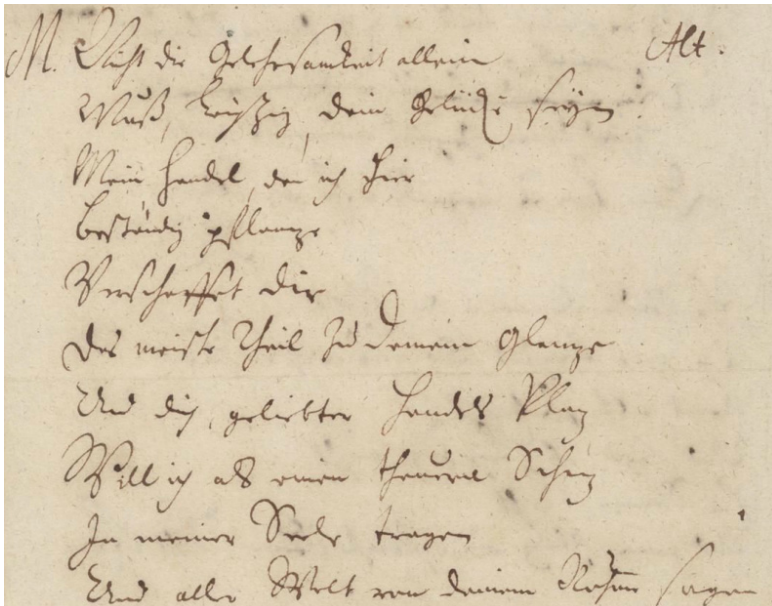 M. Nicht die Gelehrsamkeit allein Alt.
Muß, Leipzig, dein Gelücke seyn
Mein Handel, den ich hier
beständig pflanze
Verschaffet dir
Das meiste Theil zu Deinem Glanze
Und dich, geliebter Handels Plaz
Will ich als einen theuern Schaz
In meiner Seele tragen
Und aller Welt von deinem Ruhme sagen